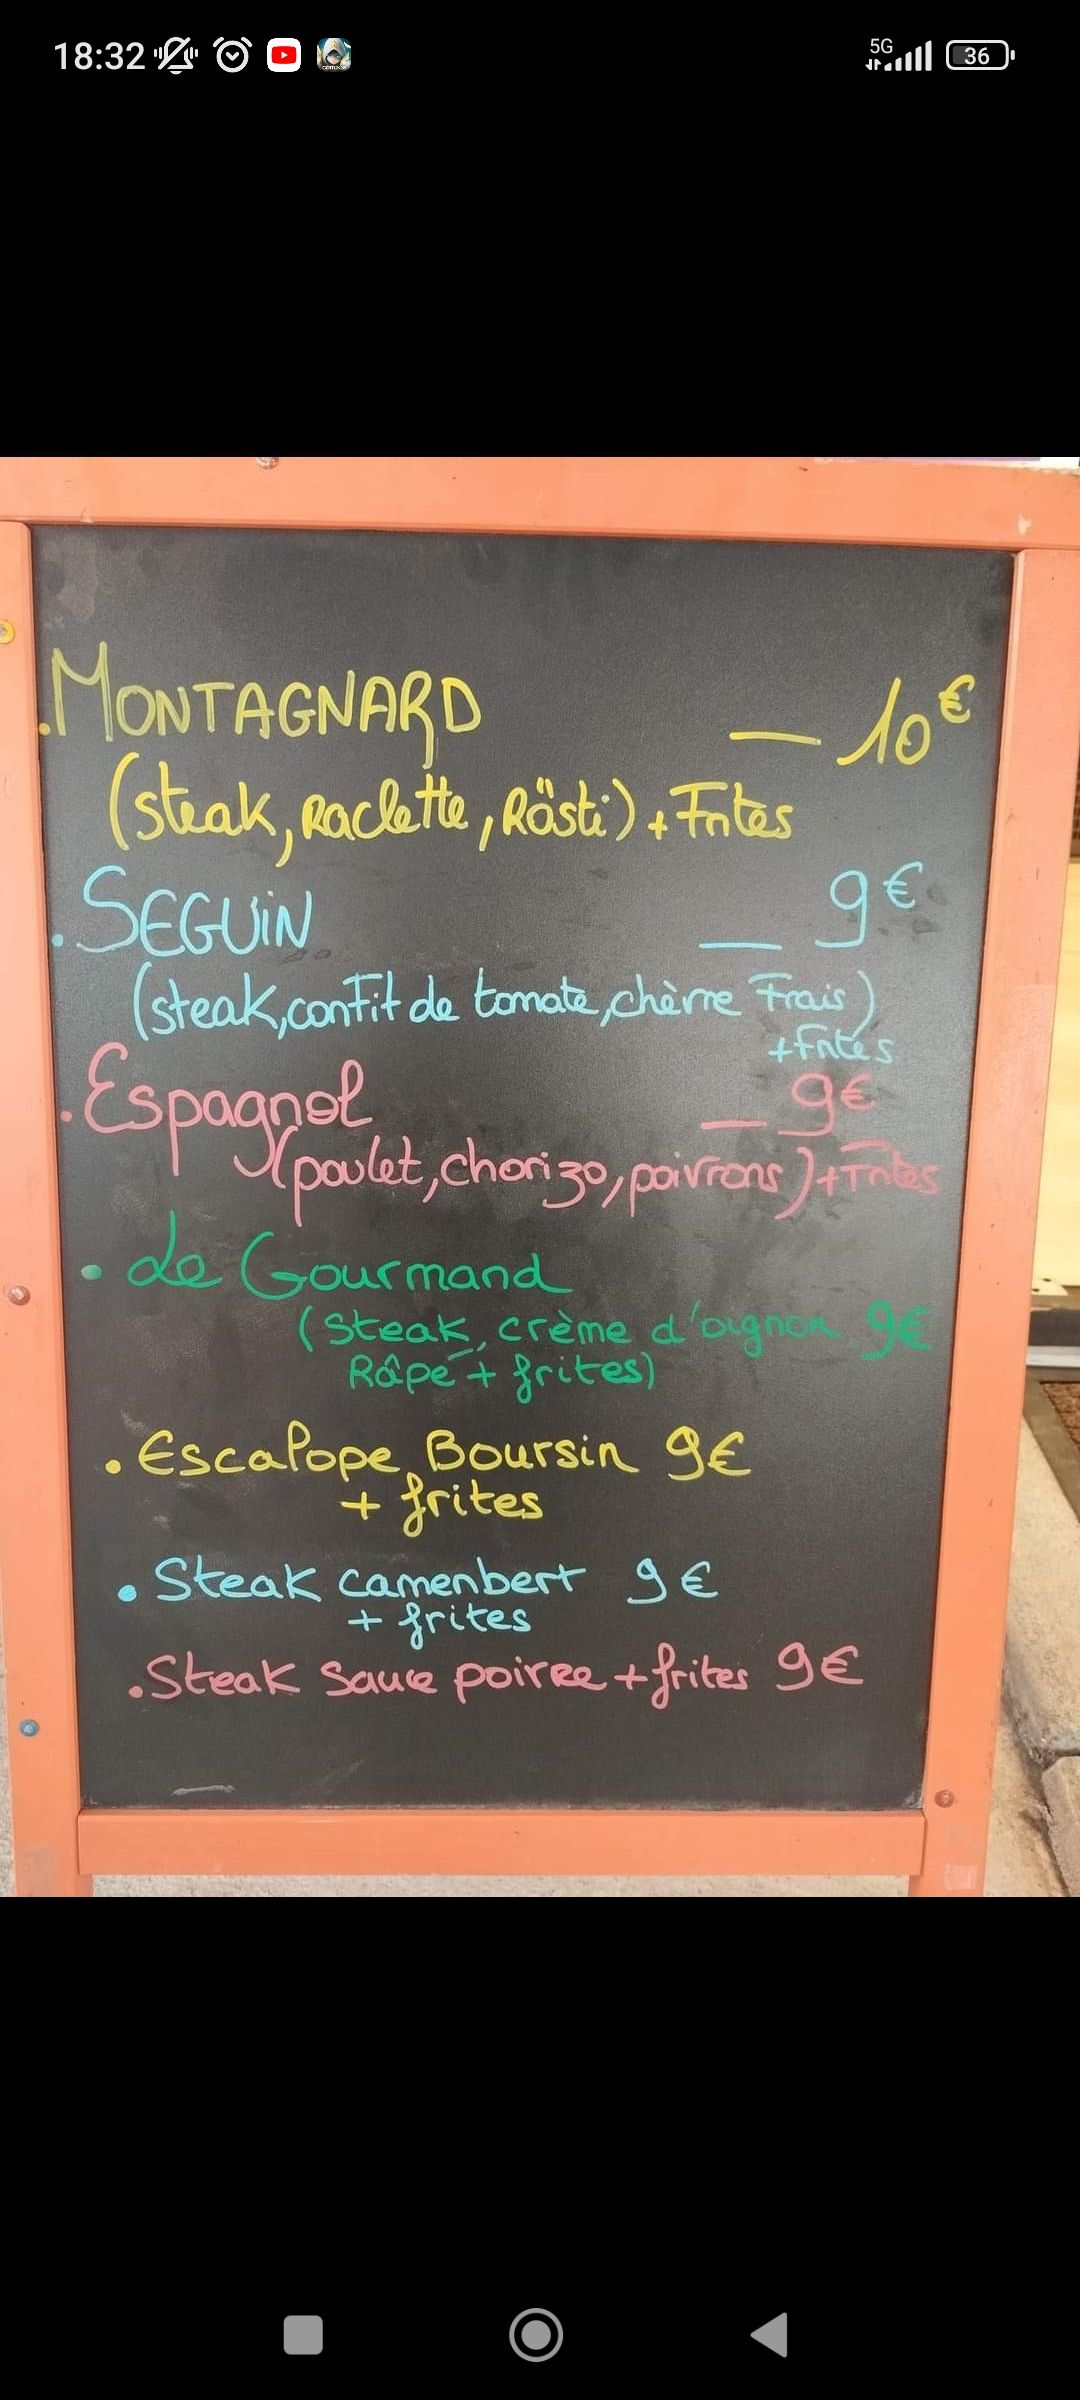 18:32
5G
36
.MONTAGNARD — 10€
(steak, Raclette, Rösti) + Frites
.SEGUiN — 9€
(steak, confit de tomate, chèvre Frais)
+ Frites
.Espagnol — 9€
(poulet, chorizo, poivrons) + Frites
• Le Gourmand
(Steak, crème d'oignon 9€
Râpé + frites)
• Escalope Boursin 9€
+ frites
• Steak camenbert 9€
+ frites
.Steak sauce poivre + frites 9€